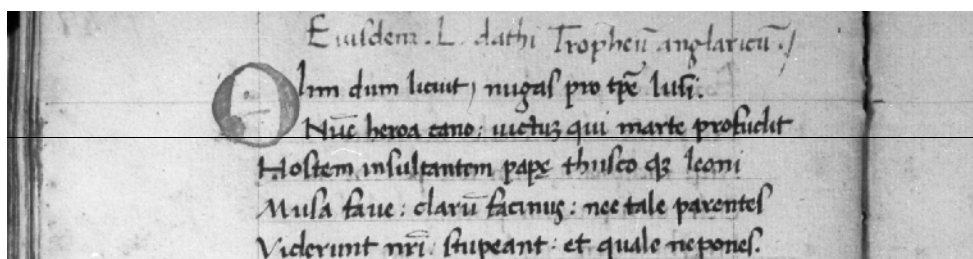 Eiusdem . L. dathi Tropheū anglaricū ./
Olim dum licuit, nugas pro tp̄e lusi.
Nūc heroa cano: uictuʒ qui marte profudit
Hostem insultantem papę thusco qʒ leoni
Musa faue: clarū facinus: nec tale parentes
Viderunt nr̄i. stupeant: et quale nepotes.